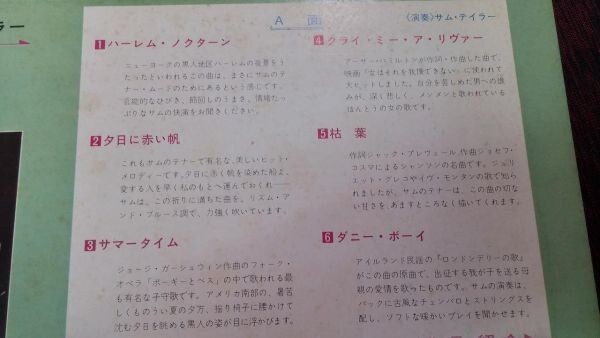 ラー
A 面
〈演奏〉サム・テイラー
1 ハーレム・ノクターン
ニューヨークの黒人地区ハーレムの夜景をう
たったといわれるこの曲は、まさにサムのテ
ナー・ムードのためにあるという感じです。
官能的なひびき、節回しのうまさ、情緒たっ
ぷりなサムの快演をお聞きください。
2 夕日に赤い帆
これもサムのテナーで有名な、美しいヒット・
メロディーです。夕日に赤く帆を染めた船よ、
愛する人を早く私のもとへ運んでおくれ――
サムは、この祈りに満ちた曲を、リズム・ア
ンド・ブルース調で、力強く吹いています。
3 サマータイム
ジョージ・ガーシュウィン作曲のフォーク・
オペラ「ポーギーとベス」の中で歌われる最
も有名な子守歌です。アメリカ南部の、暑苦
しくものうい夏の夕方、揺り椅子に腰かけて
沈む夕日を眺める黒人の姿が目に浮かびます。
4 クライ・ミー・ア・リヴァー
アーサー・ハミルトンが作詞・作曲した曲で、
映画「女はそれを我慢できない」に使われて
大ヒットしました。自分を苦しめた男への恨
みが、深く悲しく、メンメンと歌われている
ほんとうの女の歌です。
5 枯 葉
作詞ジャック・プレヴェール、作曲ジョセフ・
コスマによるシャンソンの名曲です。ジュリ
エット・グレコやイヴ・モンタンの歌で知ら
れましたが、サムのテナーは、この曲の切な
い甘さを、あますところなく描いてくれます。
6 ダニー・ボーイ
アイルランド民謡の「ロンドンデリーの歌」
がこの曲の原曲で、出征する我が子を送る母
親の愛情を歌ったものです。サムの演奏は、
バックに古風なチェンバロとストリングスを
配し、ソフトな暖かいプレイを聞かせます。